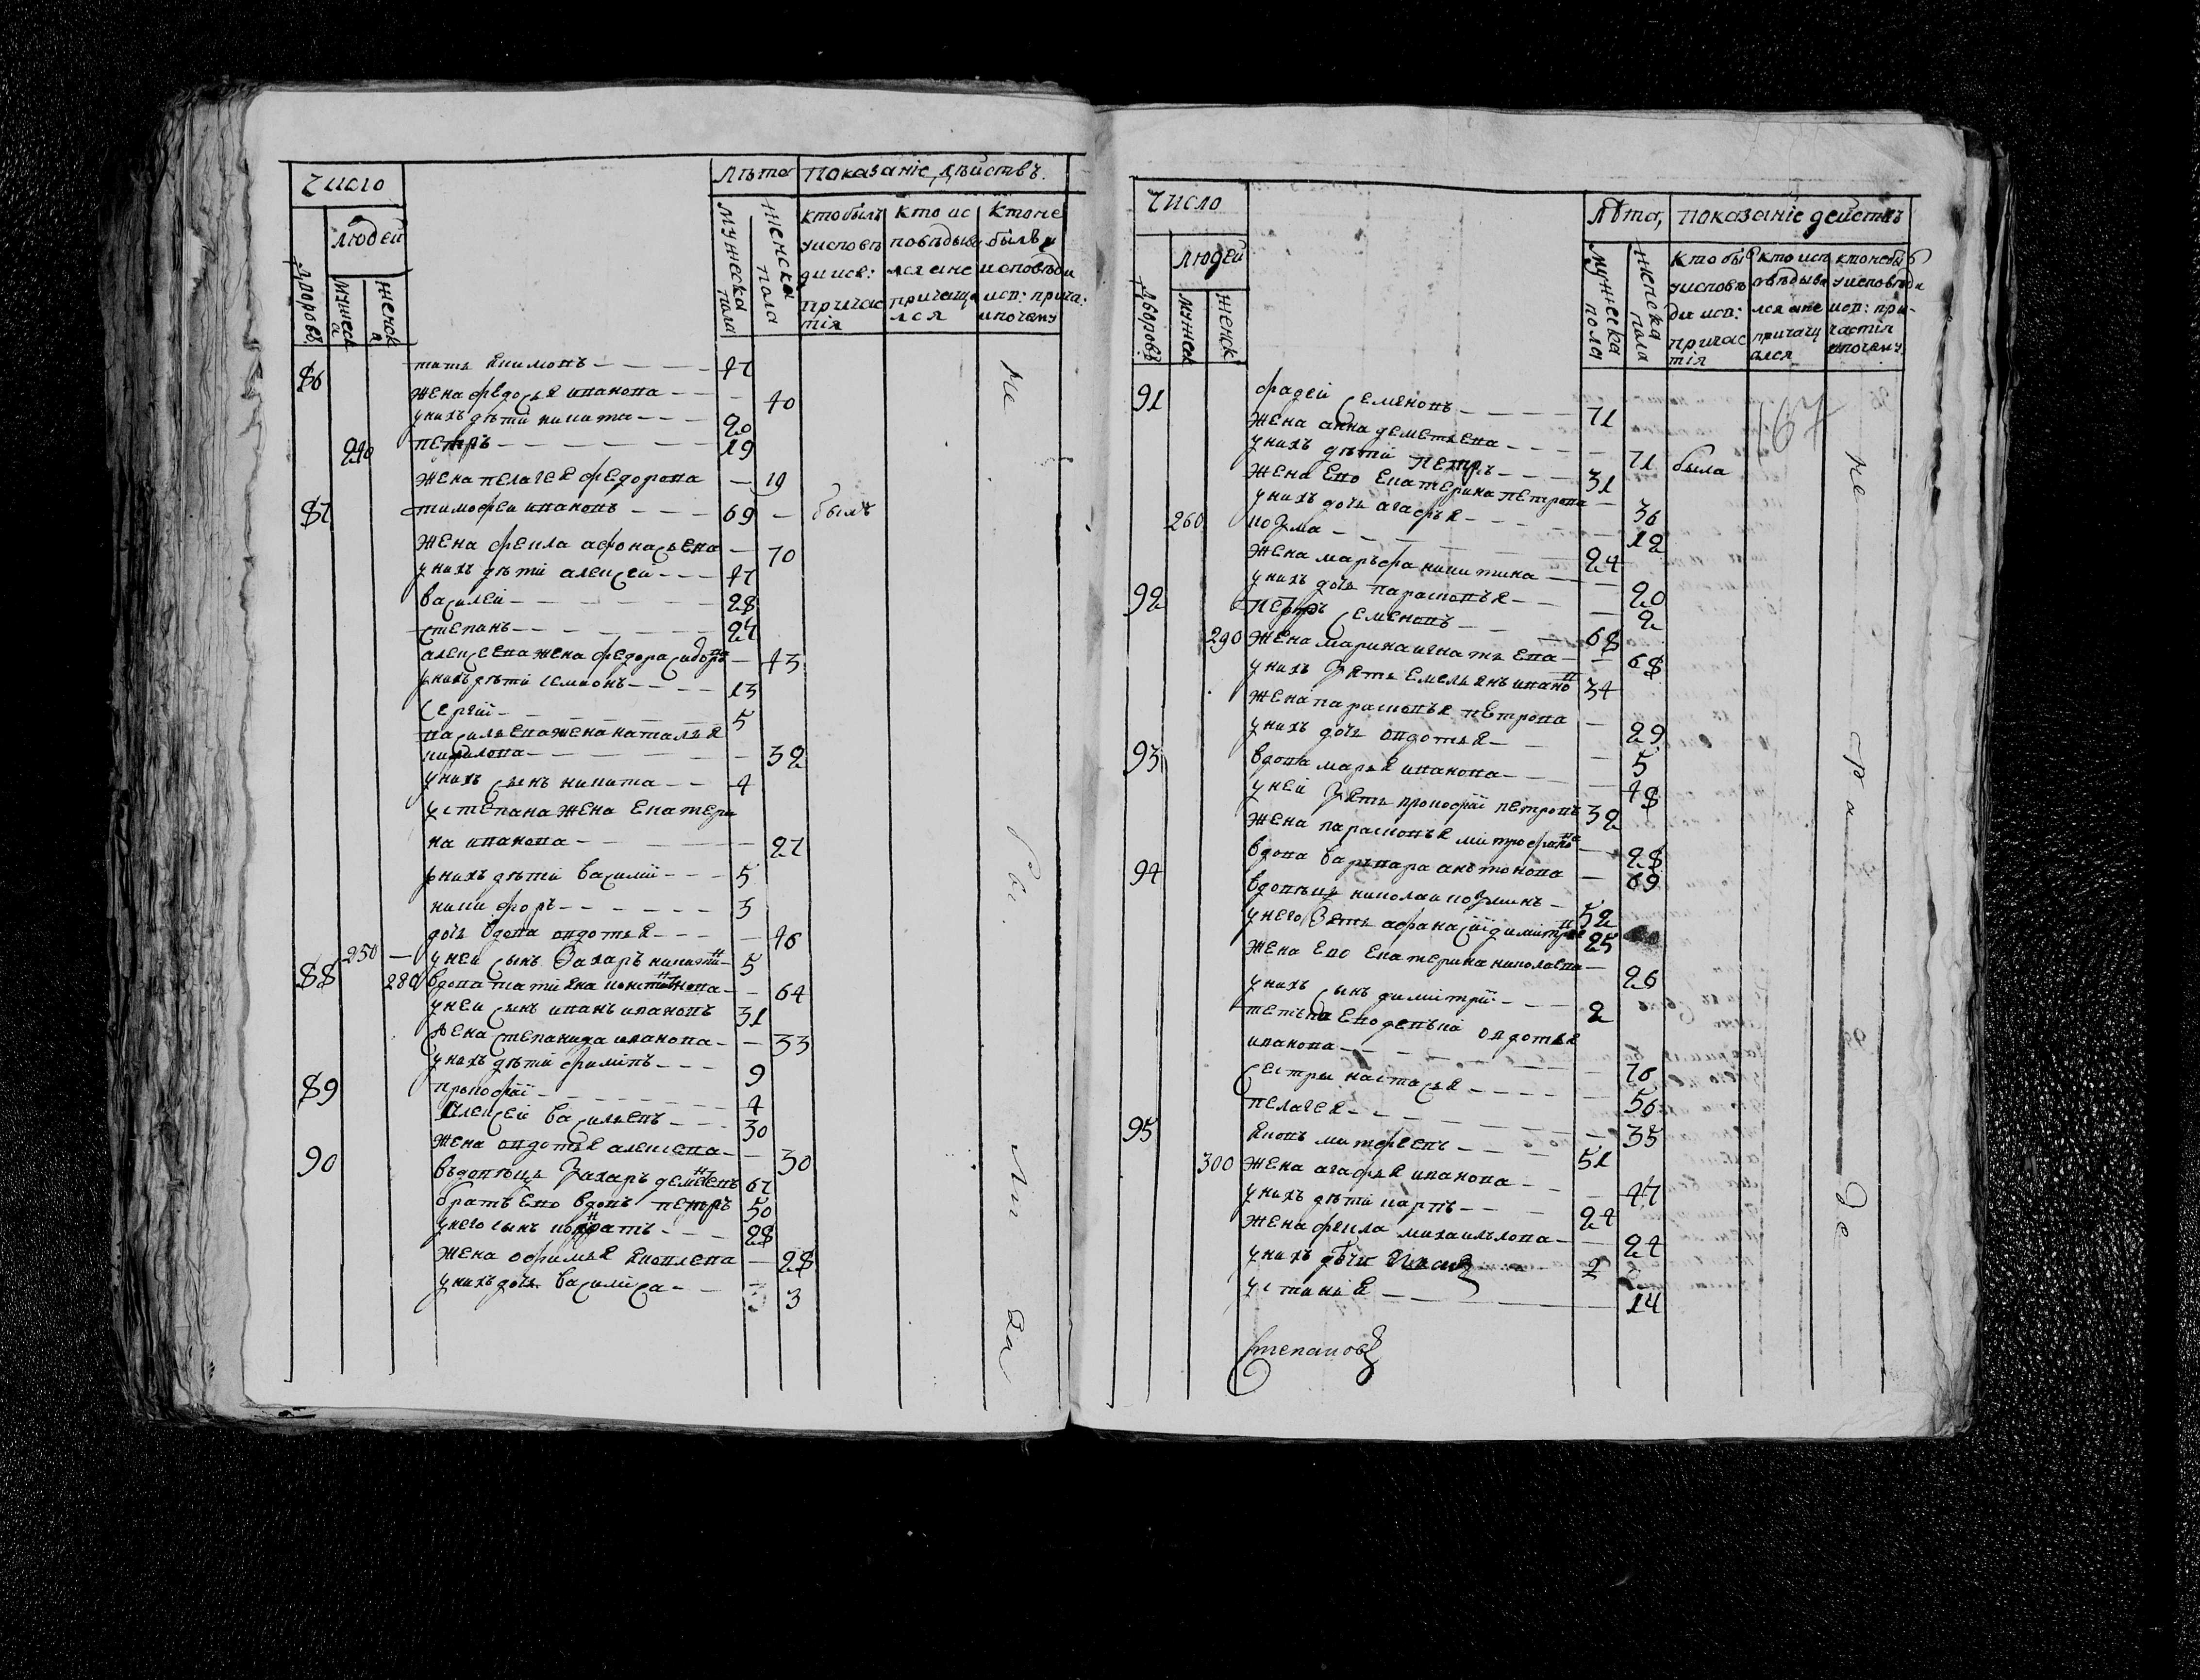 Число
людей
Дворовъ
мужеска
женска
Лѣта
мужеска пола
женска пола
Показаніе дѣиствъ.
кто былъ
у исповѣ
ди и св:
причас
тія
кто ис
повѣдыва
лся а не
причаща
лся
кто не
былъ у
исповѣди
исв: прича:
и почему
86 жена федосья иванова - - - 40
у нихъ дѣти никита - - 20
240 петръ - - - - - 19
жена пелагея федорова - 19
87 тимофеи ивановъ - - - 69 - былъ
жена фекла афонасьева - 70
у нихъ дѣти алексеи - - - 47
василеи - - - - - 28
степанъ - - - - - 27
алексеева жена федора сидоров - 43
у нихъ дѣти семионъ - - - - 13
сергіи - - - - - 5
васильева жена наталья
- - - - 32
у нихъ сынъ никита - - 4
у степана жена екатери
на иванова - - - - 27
у нихъ дѣти василіи - - - 5
никифоръ - - - - - - 3
дочь вдова авдотья - - - - 46
250 - у неи сынъ захаръ никитин - 5
88 280 вдова татияна - - 64
у неи сынъ иванъ ивановъ 31
жена степанида иванова - - 33
у нихъ дѣти филипъ - - - 9
прокофіи - - - - - 4
89 алексеи васильевъ - - - 30
жена авдотья алексеева - - 30
90 вьдовецъ захаръ дементьевъ 67
братъ ево вдовъ петръ 50
у него сынъ - - - 28
жена офимья яковлева - 28
у нихъ дочь василиса - - 3
не
Число
людей
Дворовъ
мужеск
женск
лѣта,
мужеска пола
женска пола
показаніе действъ
кто бы
у исповѣ
ди исп:
причас
тія
кто исп
овѣдыва
лся а не
причащ
ался
кто не был
у исповѣди
исп: при-
частія
и почему
167
91 фадеи семеновъ - - - - 71
жена анна деметьева - - - - 71 была
у нихъ дѣти петръ - - - 31
жена ево екатерина петрова - 36
у нихъ дочь агафья - - - - - 12
260 козма - - - - - 24
жена марьфа никитина - - 20
у нихъ дочь парасковья - - - 2
92 петръ семеновъ - - 68
290 жена марина игнатьева - - 68
у нихъ зять емельянъ иванов 34
жена парасковья петрова - 29
у нихъ дочь авдотья - - - 5
93 вдова марья иванова - - - - 48
у неи зять прокофіи петровъ 32
жена парасковья митрофанов - 28
вдова варвара антонова - 69
94 вдовецъ николаи козминъ - 52
у него зять афанасіи димитріев 25
жена ево екатерина николаева - 26
у нихъ сынъ димитріи - - - 2
иванова - - - - - 76
сестры настасья - - - - - 56
пелагея - - - - - 35
95 яковъ матфеевъ - - - - 51
300 жена агафья иванова - - - 47
у нихъ дѣти карпъ - - - 24
жена фекла михаилъова - - 24
у нихъ дѣти - - 2
устинія - - - - - 14
Степановъ